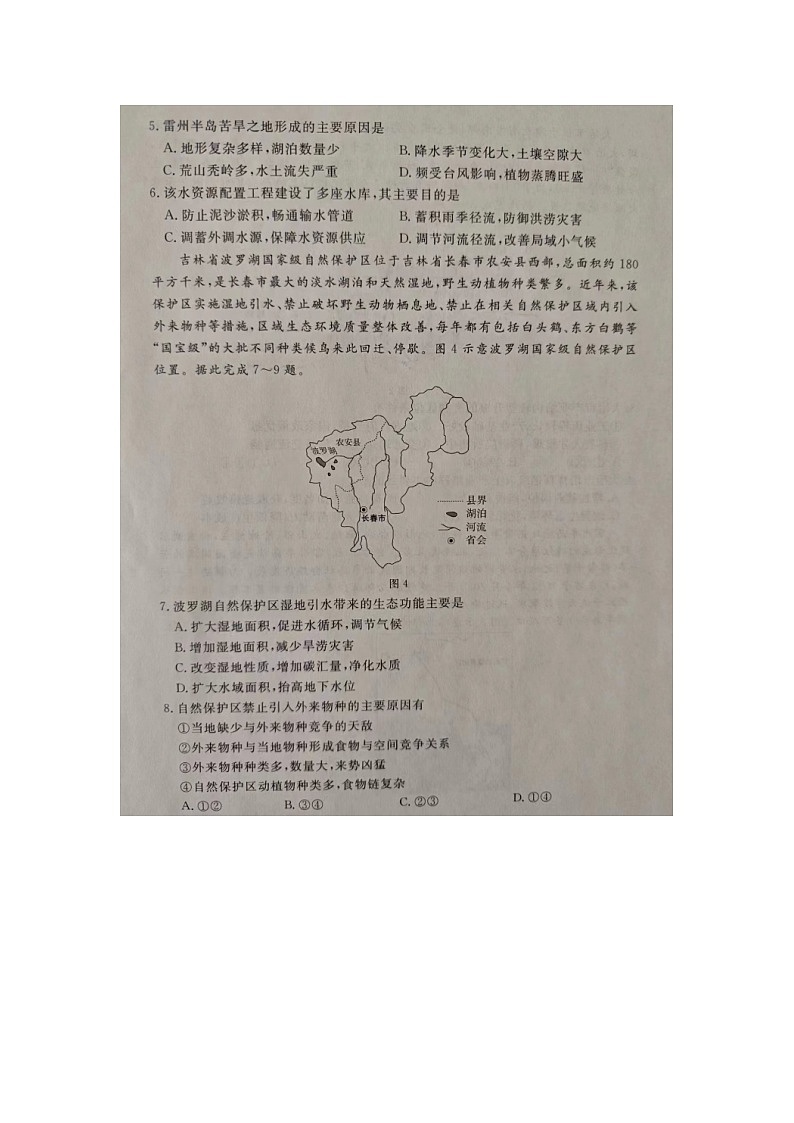 5.雷州半岛苦旱之地形成的主要原因是
A.地形复杂多样,湖泊数量少 B.降水季节变化大,土壤空隙大
C.荒山秃岭多,水土流失严重 D.频受台风影响,植物蒸腾旺盛
6.该水资源配置工程建设了多座水库,其主要目的是
A.防止泥沙淤积,畅通输水管道 B.蓄积雨季径流,防御洪涝灾害
C.调蓄外调水源,保障水资源供应 D.调节河流径流,改善局域小气候
吉林省波罗湖国家级自然保护区位于吉林省长春市农安县西部,总面积约180
平方千米,是长春市最大的淡水湖泊和天然湿地,野生动植物种类繁多。近年来,该
保护区实施湿地引水、禁止破坏野生动物栖息地、禁止在相关自然保护区域内引入
外来物种等措施,区域生态环境质量整体改善,每年都有包括白头鹤、东方白鹳等
“国宝级”的大批不同种类候鸟来此回迁、停歇。图4示意波罗湖国家级自然保护区
位置。据此完成7~9题。
农安县
波罗湖
长春市
县界
湖泊
河流
省会
图4
7.波罗湖自然保护区湿地引水带来的生态功能主要是
A.扩大湿地面积,促进水循环,调节气候
B.增加湿地面积,减少旱涝灾害
C.改变湿地性质,增加碳汇量,净化水质
D.扩大水域面积,抬高地下水位
8.自然保护区禁止引入外来物种的主要原因有
①当地缺少与外来物种竞争的天敌
②外来物种与当地物种形成食物与空间竞争关系
③外来物种种类多,数量大,来势凶猛
④自然保护区动植物种类多,食物链复杂
A.①② B.③④ C.②③ D.①④